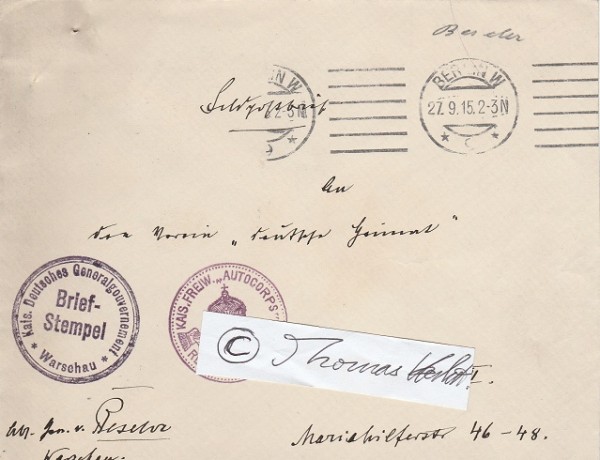 Beseler
BERLIN W
27.9.15.2-3N
* c *
N W
2-3N
Feldpostbrief
An
den Verein „Deutsche Heimat"
Kais. Deutsches Generalgouvernement
Brief-
Stempel
* Warschau *
KAIS. FREIW. „AUTOCORPS"
© Thomas I.
Abs. Gen. v. Beseler
Warschau.
Mariahilferstr 46-48.